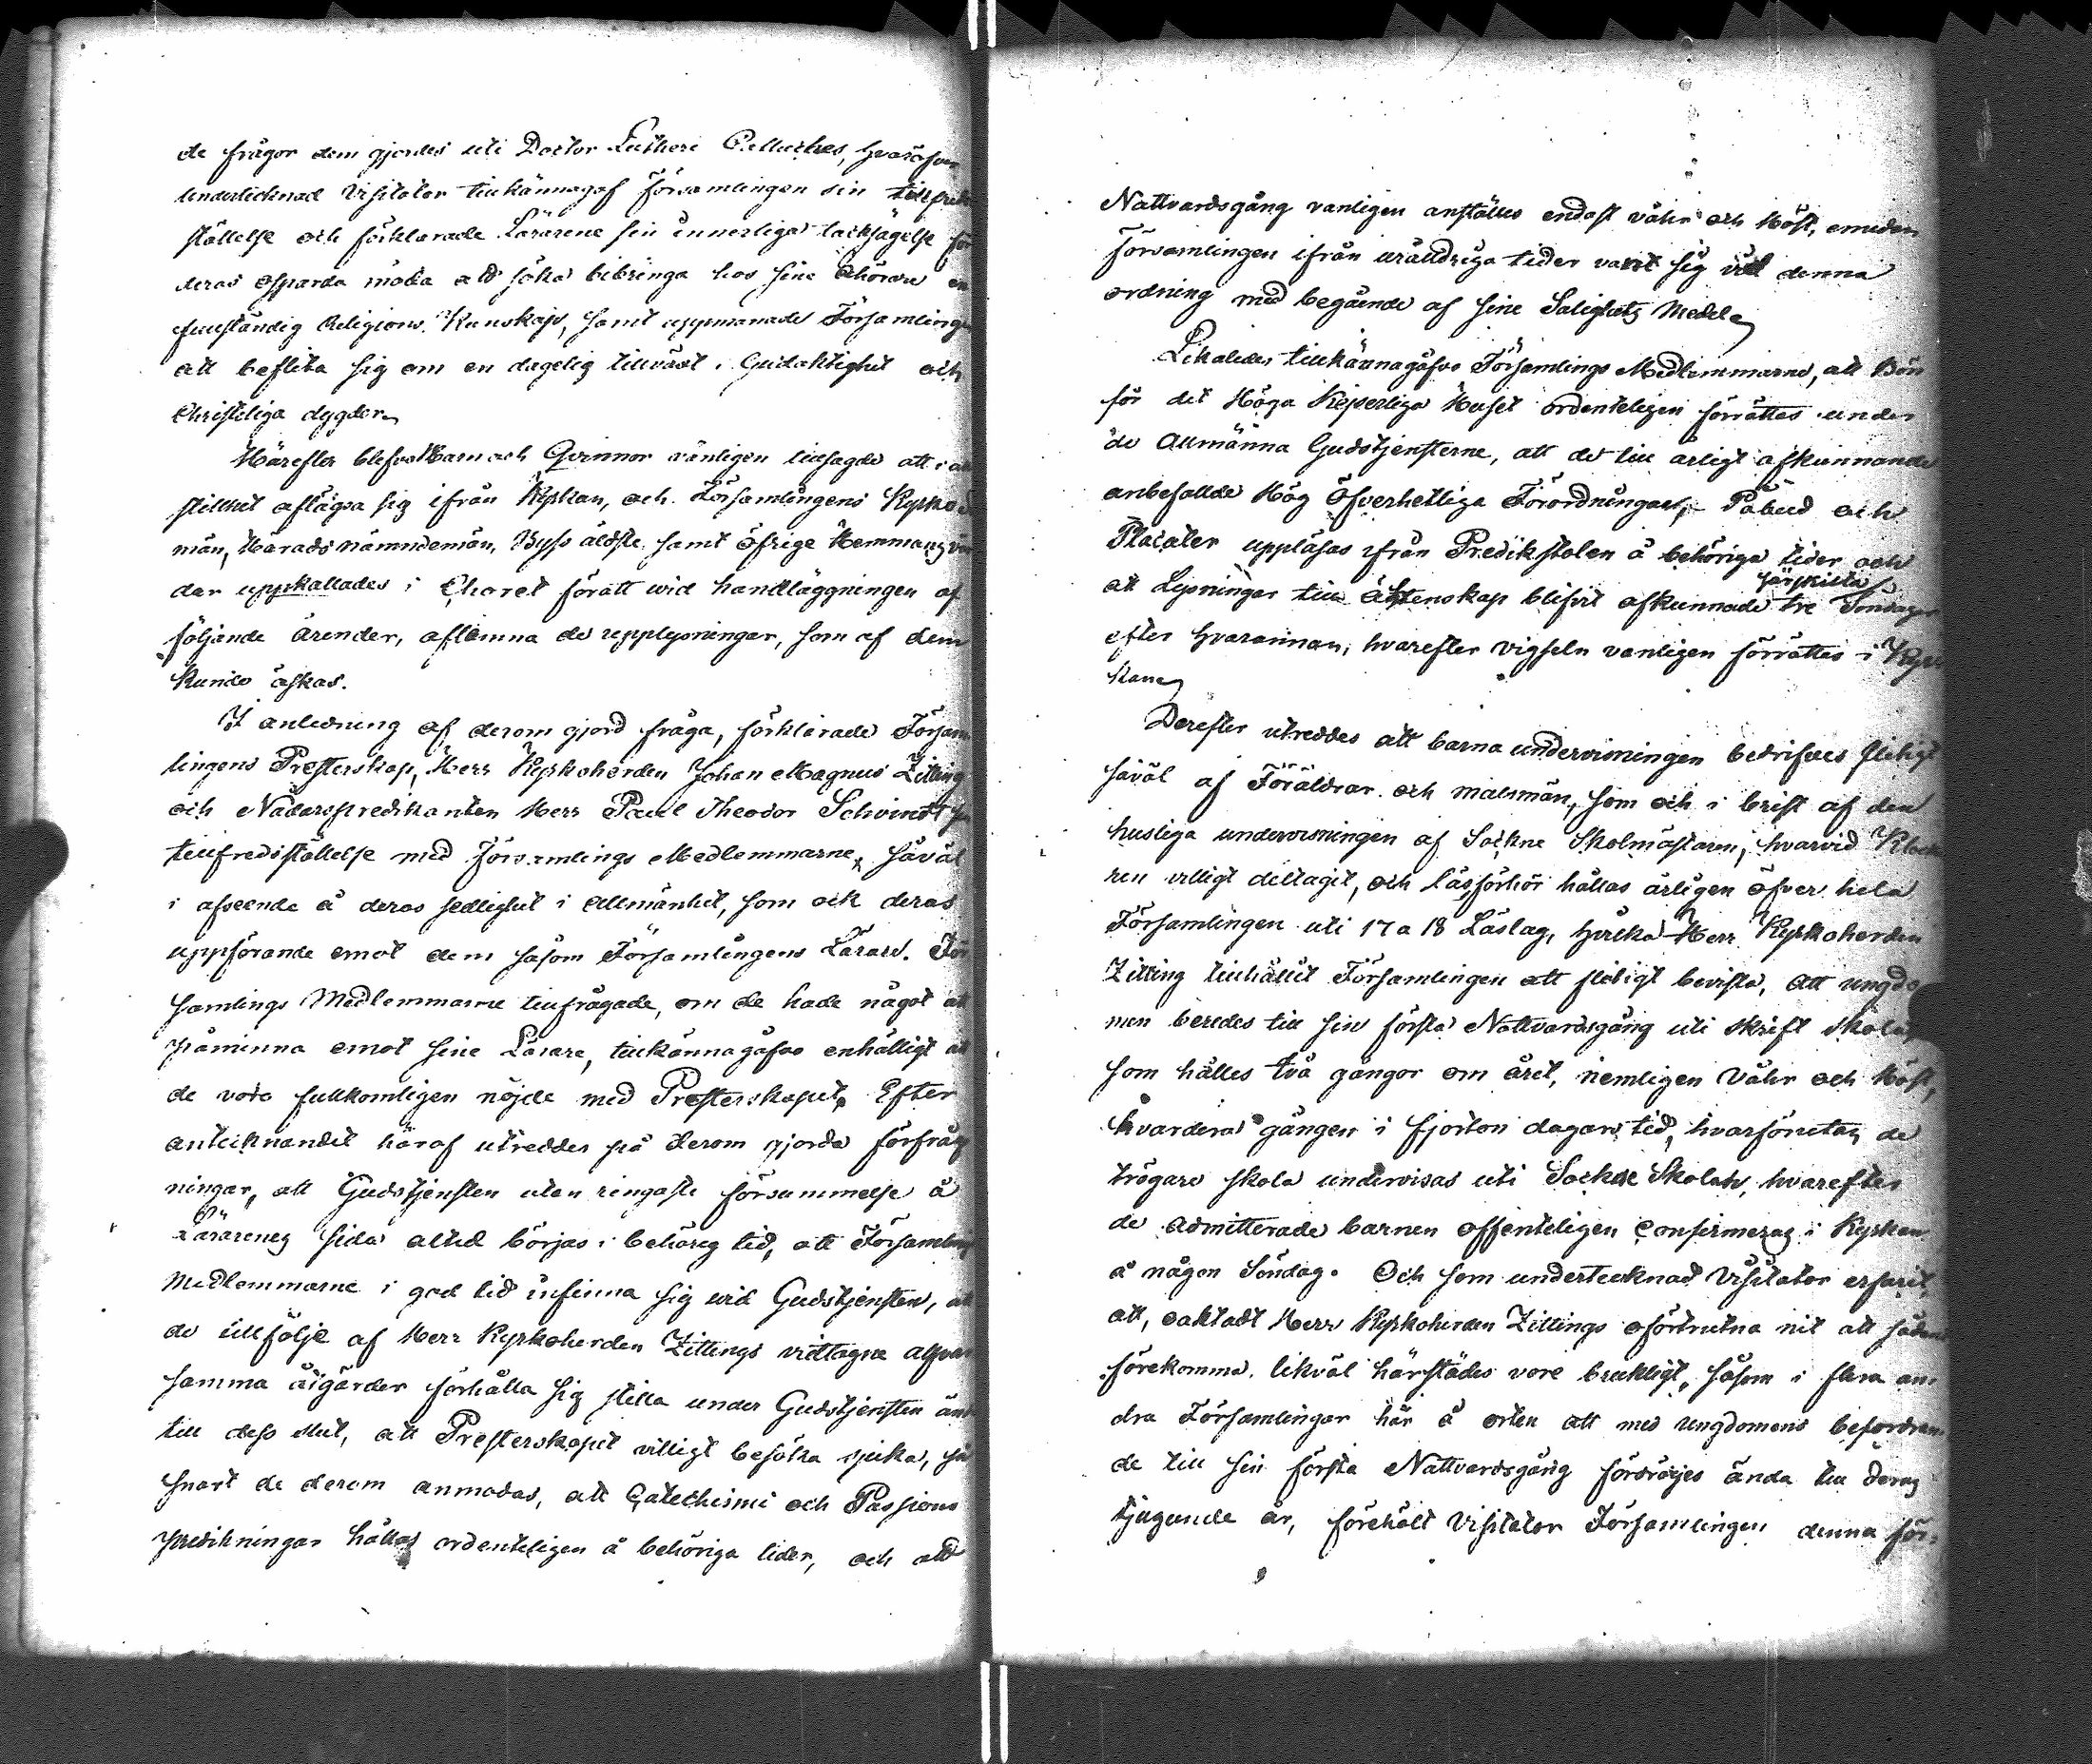 de frågor dem gjordes uti Doctor Lutheri Cateches, hvaröfver
undertecknad Visitator tillkännagaf Församlingen sin tillfreds
ställelse och förklarade Lärarene sin innerliga tacksägelse för
deras osparda möda att söka bibringa hos sine åhörare en
fullständig Religions Kunskap, samt uppmanade Församlingen
att beflita sig om en dagelig tillväxt i Gudaktighet och
Christeliga dygder
Härefter blefvo Barn och Qvinnor vänligen tillsagde att i all
stillhet aflägsa sig ifrån Kyrkan, och Församlingens Kyrko
män, Härads nämndemän, Byss äldste samt öfrige Hemmans
dar uppkallades i Choret föratt wid handläggningen af
följande ärender, aflemna de upplysningar, som af dem
kunde äskas.
I anledning af derom gjord fråga, förklarade Försam
lingens Presterskap, Herr Kyrkoherden Johan Magnus Zitting
och Nådårspredikanten Herr Paul Theodor Schvindt
tillfredsställelse med Församlings Medlemmarne, såväl
i afseende å deras sedlighet i Allmänhet, som ock deras
uppförande emot dem såsom Församlingens Lärare. För
samlings Medlemmarne tillfrågade, om de hade något att
påminna emot sine Lärare, tillkännagåfvo enhälligt att
de voro fullkomligen nöjde med Presterskapet. Efter
antecknandet häraf utreddes på derom gjorda förfråg
ningar, att Gudstjensten utan ringaste försummelse å
Lärarenes sida altid börjas i behörig tid, att Församlings
Medlemmarne i god tid infinna sig wid Gudstjensten, att
de tillfölje af Herr Kyrkoherden Zittings vidtagne alfvar
samma åtgärder förhålla sig stilla under Gudstjensten ända
till dess slut, att Presterskapet villigt besöka sjuka, så
snart de derom anmodas, att Catechismi och Passions
predikningar hållas ordenteligen å behöriga tider, och att
Nattvardsgång vanligen anställes endast våhr och Höst, emedan
Församlingen ifrån urålldriga tider vant sig vid denna
ordning med begående af sine Salighets Medel
Likaledes tillkännagåfvo Församlings Medlemmarne, att Bön
för det Höga Kejserliga Huset ordenteligen förrättes under
de Allmänna Gudstjensterne, att de till årligt afkunnande
anbefallde Hög Öfverhetliga Förordningar, Påbud och
Placater uppläsas ifrån Predikstolen å behöriga tider och
särskilta
att Lysningar till äktenskap blifvit afkunnade tre Söndagar
efter hvarannan, hvarefter vigseln vanligen förrättes i Kyr
kan
Derefter utreddes att barna undervisningen bedrifves flitigt
såväl af Föräldrar och målsmän, som och i brist af den
husliga undervisningen af Sockne Skolmästaren, hvarvid Klocka
ren villigt deltagit, och läsförhör hållas årligen öfver hela
Församlingen uti 17 a 18 Läslag, hvilka Herr Kyrkoherden
Zitting tillhållit Församlingen att flitigt bevista, att ungdo
men beredes till sin första Nattvardsgång uti skrift skola,
som hålles två gångor om året, nemligen Våhr och Höst,
hvardera gången i fjorton dagars tid, hvarförutan de
trögare skola undervisas uti Sockne Skolan, hvarefter
de admitterade barnen offenteligen Confirmeras i Kyrkan
å någon Söndag. Och som undertecknad Visitator erfarit,
att, oaktadt Herr Kyrkoherden Zittings oförtrutna nit att sådant
förekomma, likväl härstädes vore brukligt, såsom i flera an-
dra Församlingar här å orten att med ungdomens befordran-
de till sin första Nattvardsgång fördröjes ända till deras
tjugunde år, förehölt Visitator Församlingen denna för-